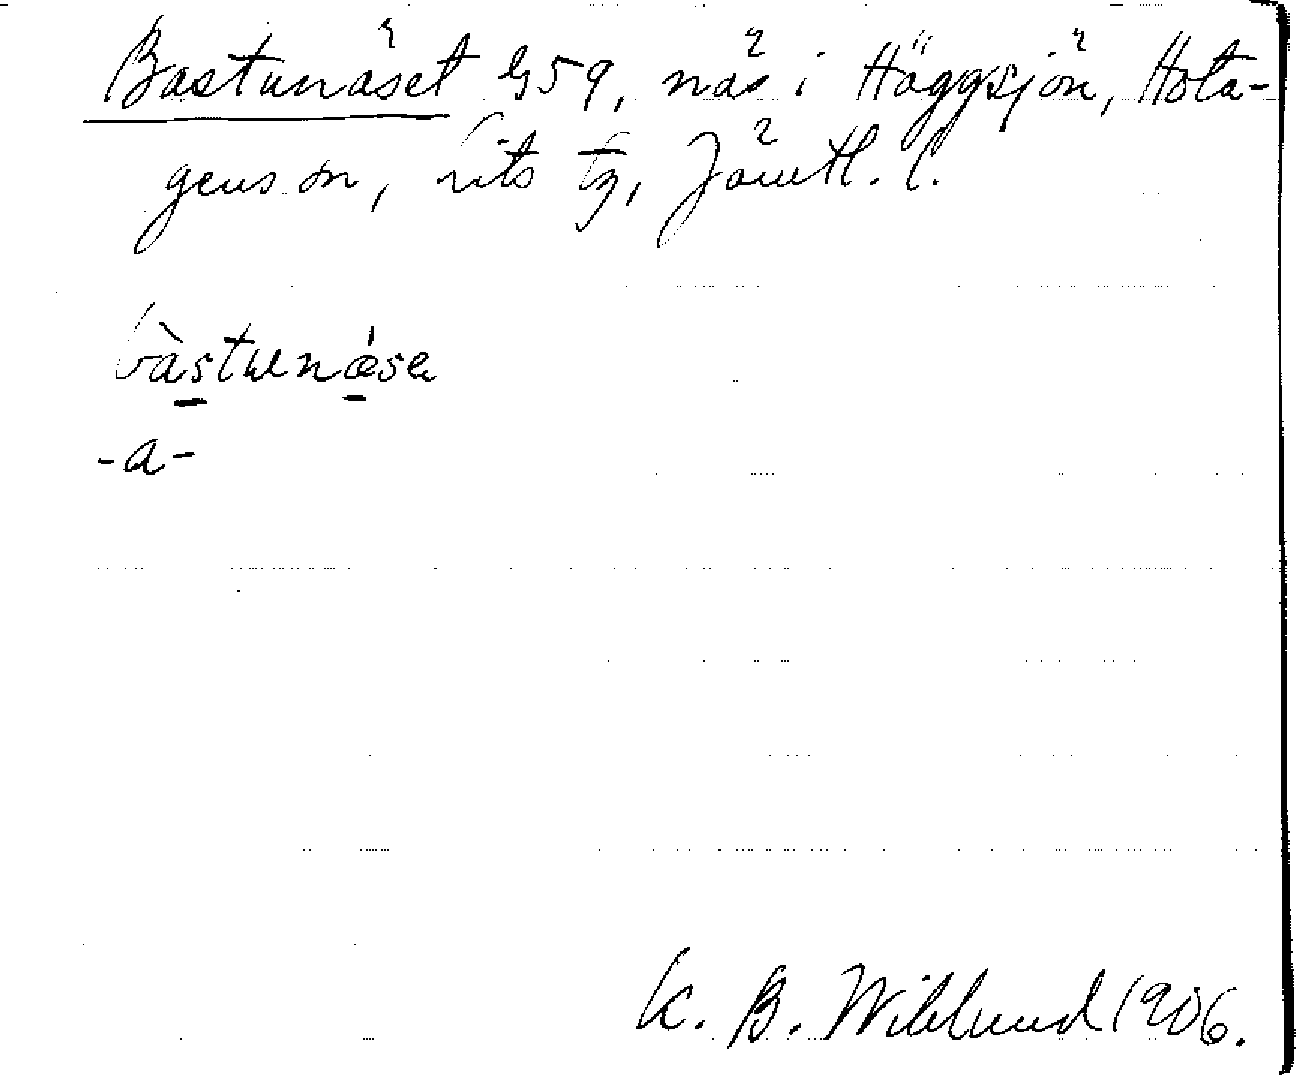 Bastunäset G59, näs i Häggsjön, Hota-
gens sn, Lits tg, Jämtl. l.
bàstunǽsa
-a-
K. B. Wiklund 1906.